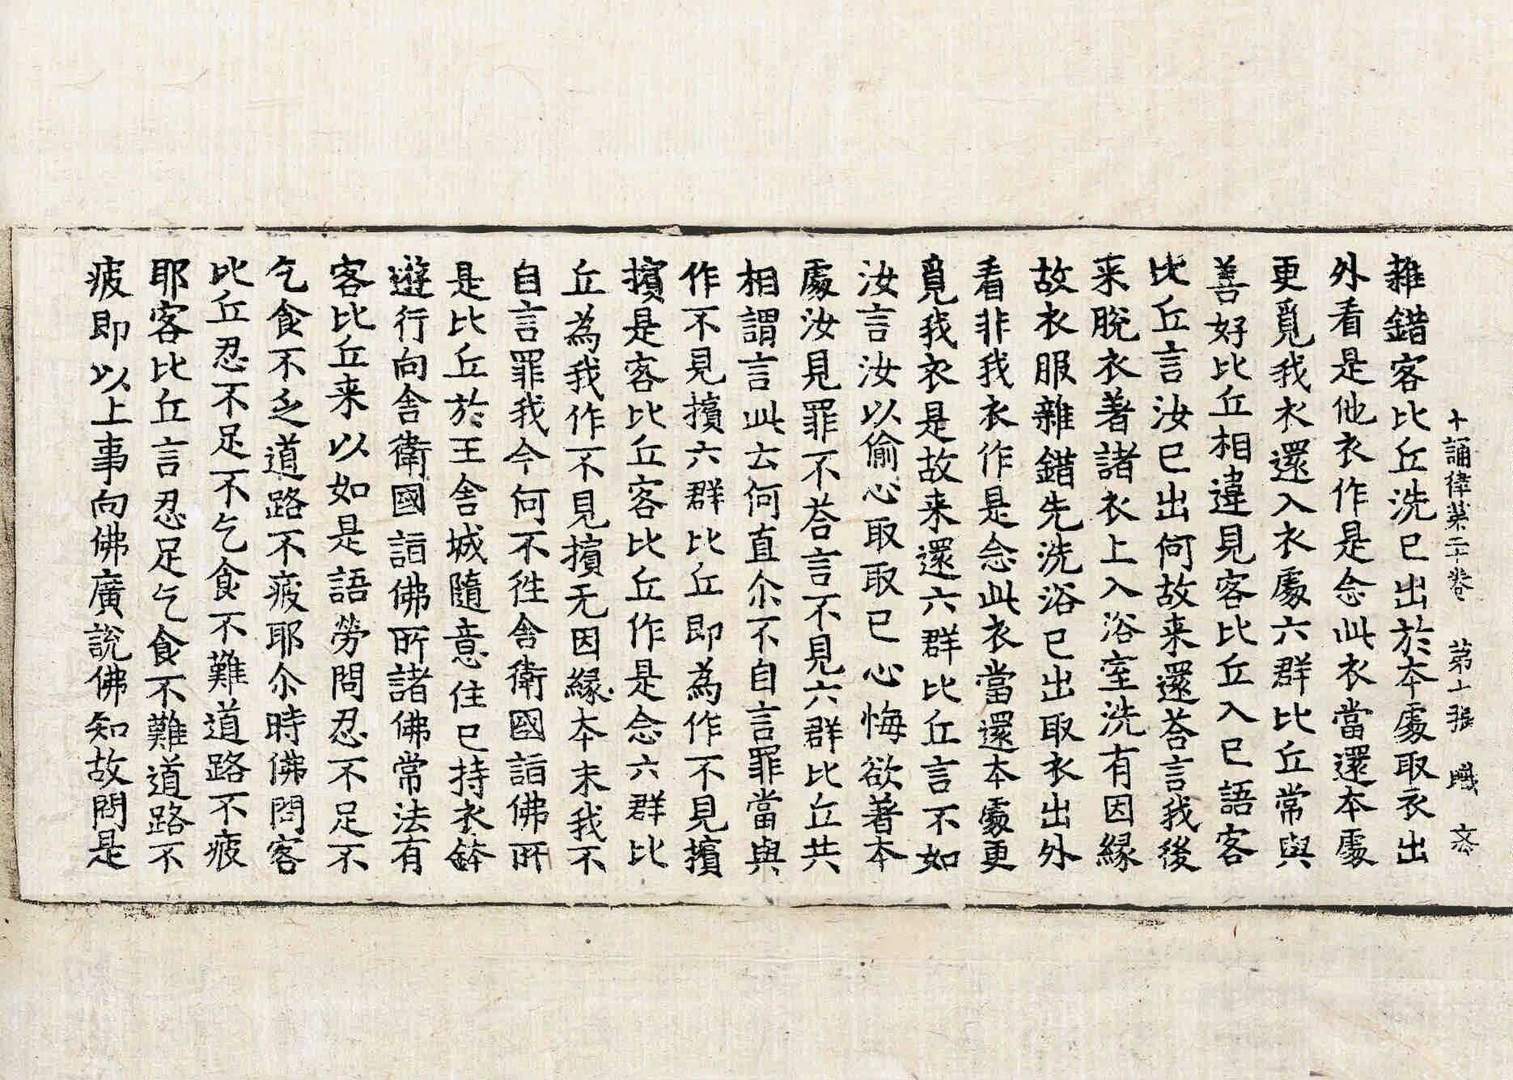 十誦律第二十卷　第十張　職
雜錯客比丘洗已出於本處取衣出
外看是他衣作是念此衣當還本處
更覓我衣還入衣處六群比丘常與
善好比丘相違見客比丘入已語客
比丘言汝已出何故来還荅言我後
来脫衣著諸衣上入浴室洗有因緣
故衣服雜錯先洗浴已出取衣出外
看非我衣作是念此衣當還本處更
覓我衣是故来還六群比丘言不如
汝言汝以偷心取取已心悔欲著本
處汝見罪不荅言不見六群比丘共
相謂言此云何直尒不自言罪當與
作不見擯六群比丘即為作不見擯
擯是客比丘客比丘作是念六群比
丘為我作不見擯无因緣本末我不
自言罪我今何不往舍衛國詣佛所
是比丘於王舍城隨意住已持衣鉢
遊行向舍衛國詣佛所諸佛常法有
客比丘来以如是語勞問忍不足不
乞食不乏道路不疲耶尒時佛問客
比丘忍不足不乞食不難道路不疲
耶客比丘言忍足乞食不難道路不
疲即以上事向佛廣說佛知故問是